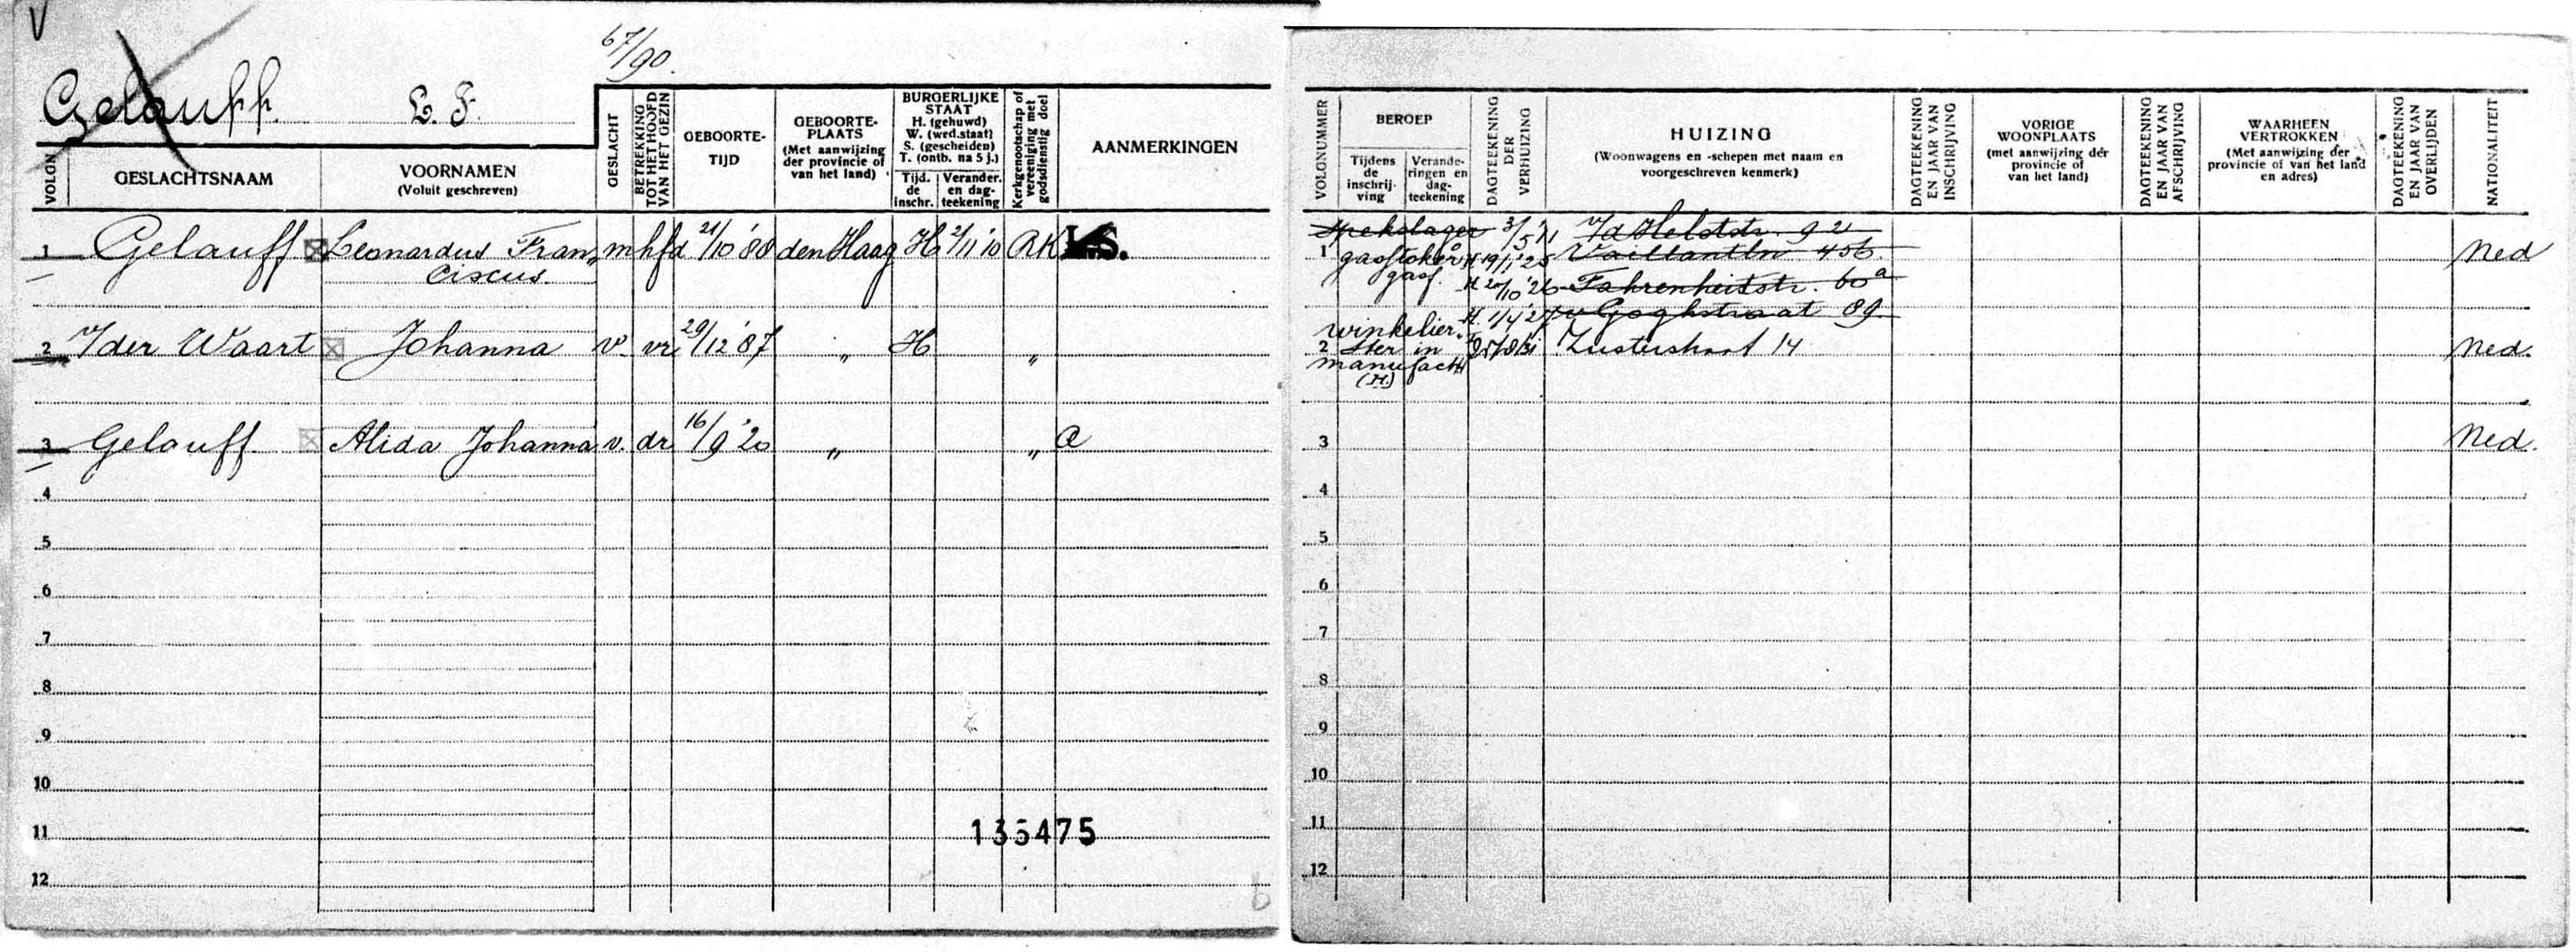 V
67/90.
Gelauff. L. F.
VOLGN.
GESLACHTSNAAM
VOORNAMEN
(Voluit geschreven)
GESLACHT
BETREKKING
TOT HET HOOFD
VAN HET GEZIN
GEBOORTE-
TIJD
GEBOORTE-
PLAATS
(Met aanwijzing
der provincie of
van het land)
BURGERLIJKE
STAAT
H. (gehuwd)
W. (wed.staat)
S. (gescheiden)
T. (ontb. na 5 j.)
Tijd.
de
inschr.
Verander.
en dag-
teekening
Kerkgenootschap of
vereeniging met
godsdienstig doel
AANMERKINGEN
1 Gelauff Leonardus Fran„ m hfd 21/10 '88 den Haag H 2/11 '10 RK L.S.
ciscus.
2 v/der Waart Johanna v. vr. 29/12 '87 „ H „
3 Gelauff. Alida Johanna v. dr 16/9 '20 „ „ a
4
5
6
7
8
9
10
11 135475
12
VOLGNUMMER
BEROEP
Tijdens
de
inschrij-
ving
Verande-
ringen en
dag-
teekening
DAGTEEKENING
DER
VERHUIZING
HUIZING
(Woonwagens en -schepen met naam en
voorgeschreven kenmerk)
DAGTEEKENING
EN JAAR VAN
INSCHRIJVING
VORIGE
WOONPLAATS
(met aanwijzing der
provincie of
van het land)
DAGTEEKENING
EN JAAR VAN
AFSCHRIJVING
WAARHEEN
VERTROKKEN
(Met aanwijzing der
provincie of van het land
en adres)
DAGTEEKENING
EN JAAR VAN
OVERLIJDEN
NATIONALITEIT
Spekslager 3/5 '11 v/d Helststr. 92
1 gasstoker H 19/1 '25 Vaillantln 456. Ned
gasf. H 20/10 '26 Fahrenheitstr. 60a
H. 1/4 '27 v Goghstraat 89.
winkelier.
2 ster in Zusterstraat 14 Ned.
manufact
(H.)
3 Ned.
4
5
6
7
8
9
10
11
12